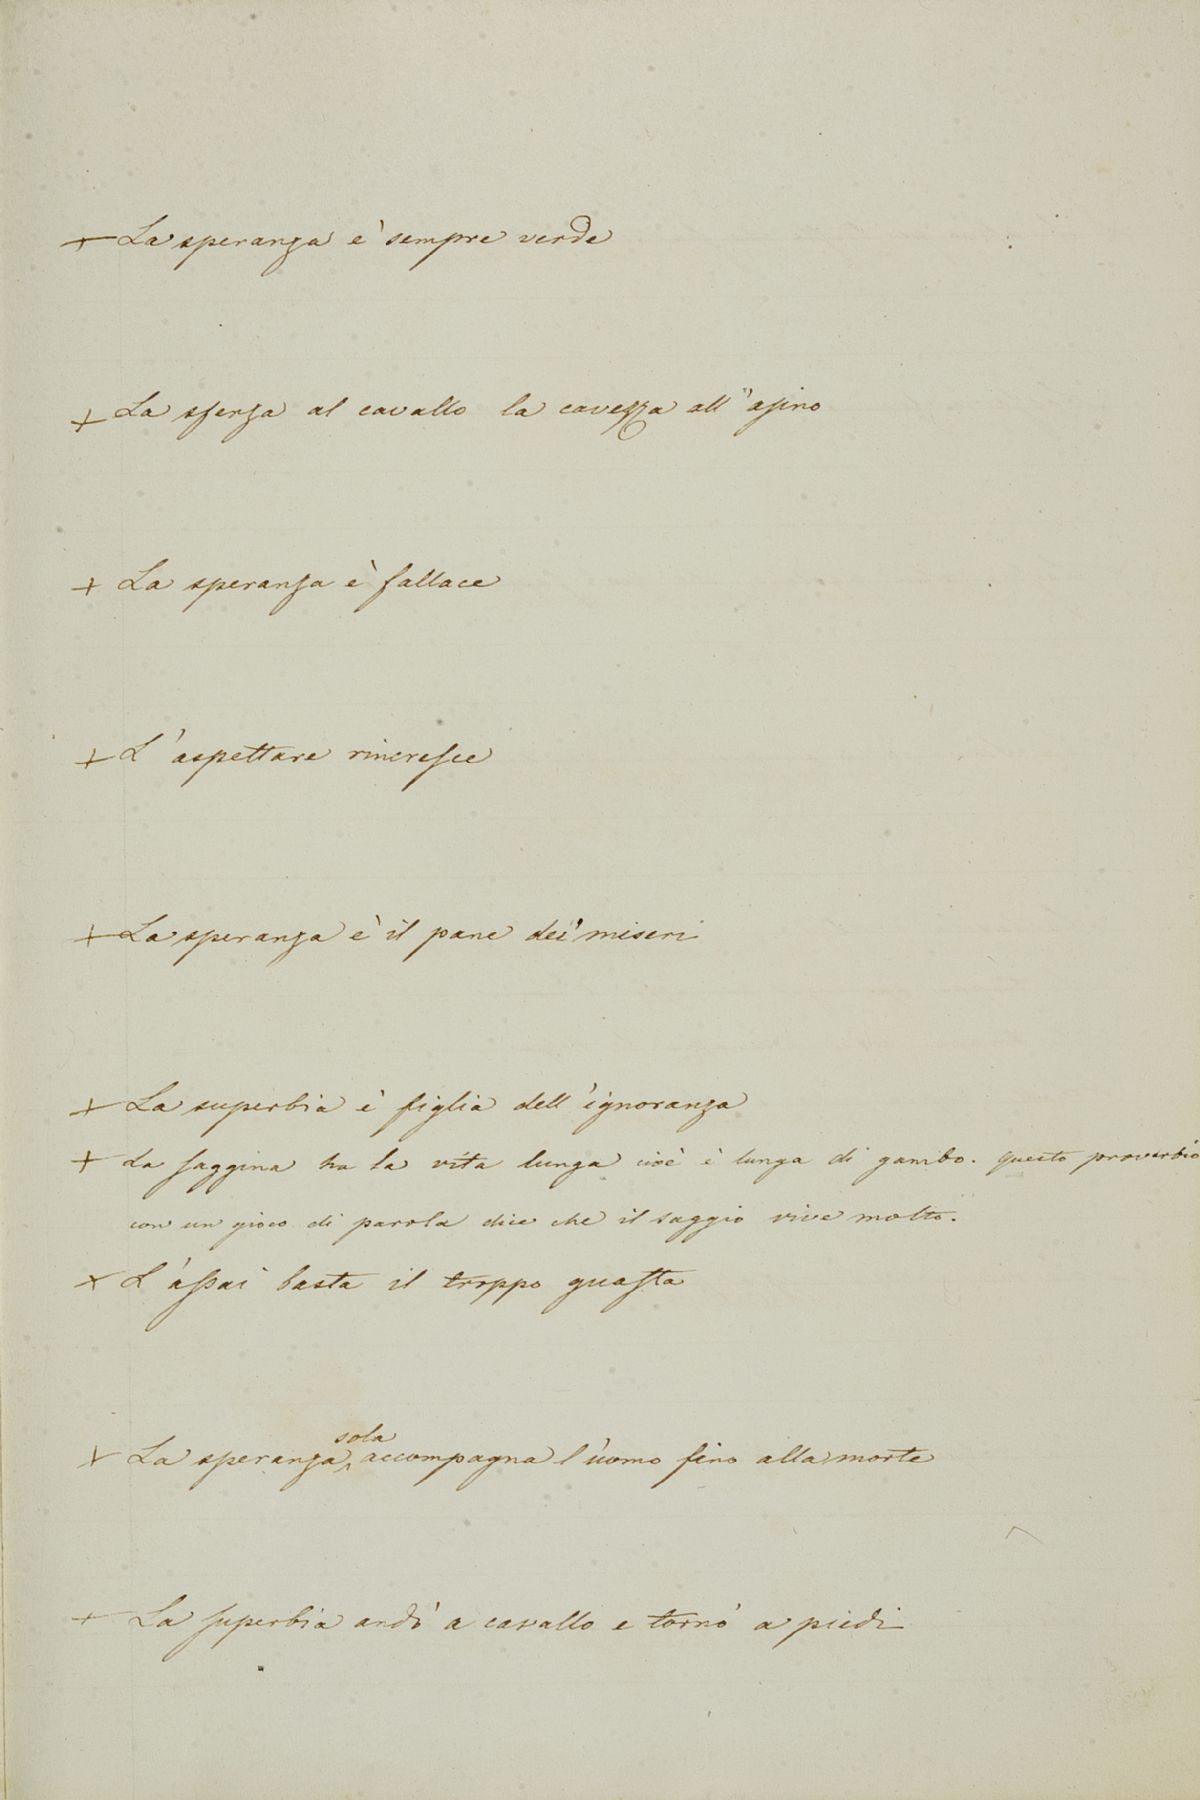 + La speranza è sempre verde
+ La sferza al cavallo la cavezza all'asino
+ La speranza è fallace
+ L'aspettare rincresce
+ La speranza è il pane dei miseri
+ La superbia è figlia dell'ignoranza
+ La saggina ha la vita lunga cioè è lunga di gambo. questo proverbio
con un gioco di parola dice che il saggio vive molto.
+ L'assai basta il troppo guasta
+ La speranza sola accompagna l'uomo fino alla morte
+ La superbia andò a cavallo e tornò a piedi